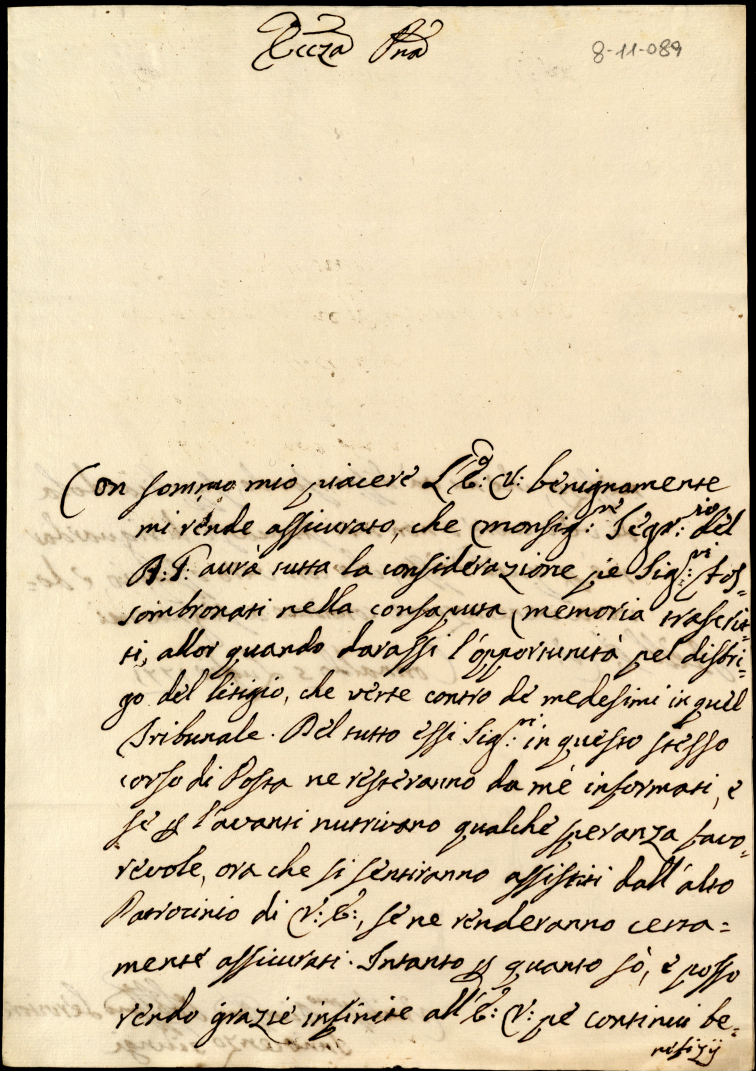 Eccza Pna
8-11-089
Con sommo mio piacere L'E: V: benignamente
mi rende assicurato, che Monsig:re Segr:rio del
B: G: aurà tutta la considerazione pe Sig:ri Fos-
sombronati nella consaputa memoria trascrit-
ti, allor quando darassi l'opportunità pel distri-
go del litigio, che verte contro de medesimi in quel
Tribunale. Del tutto essi Sig:ri in questo stesso
corso di Posta ne resteranno da mè informati, e
se p l'avanti nutrivano qualche speranza favo-
revole, ora che si sentiranno assistiti dall'alto
Patrocinio di V: E:, se ne renderanno certa=
mente assicurati. Intanto p quanto sò, e posso
rendo grazie infinite all'E: V: pe continui be-
nefizij